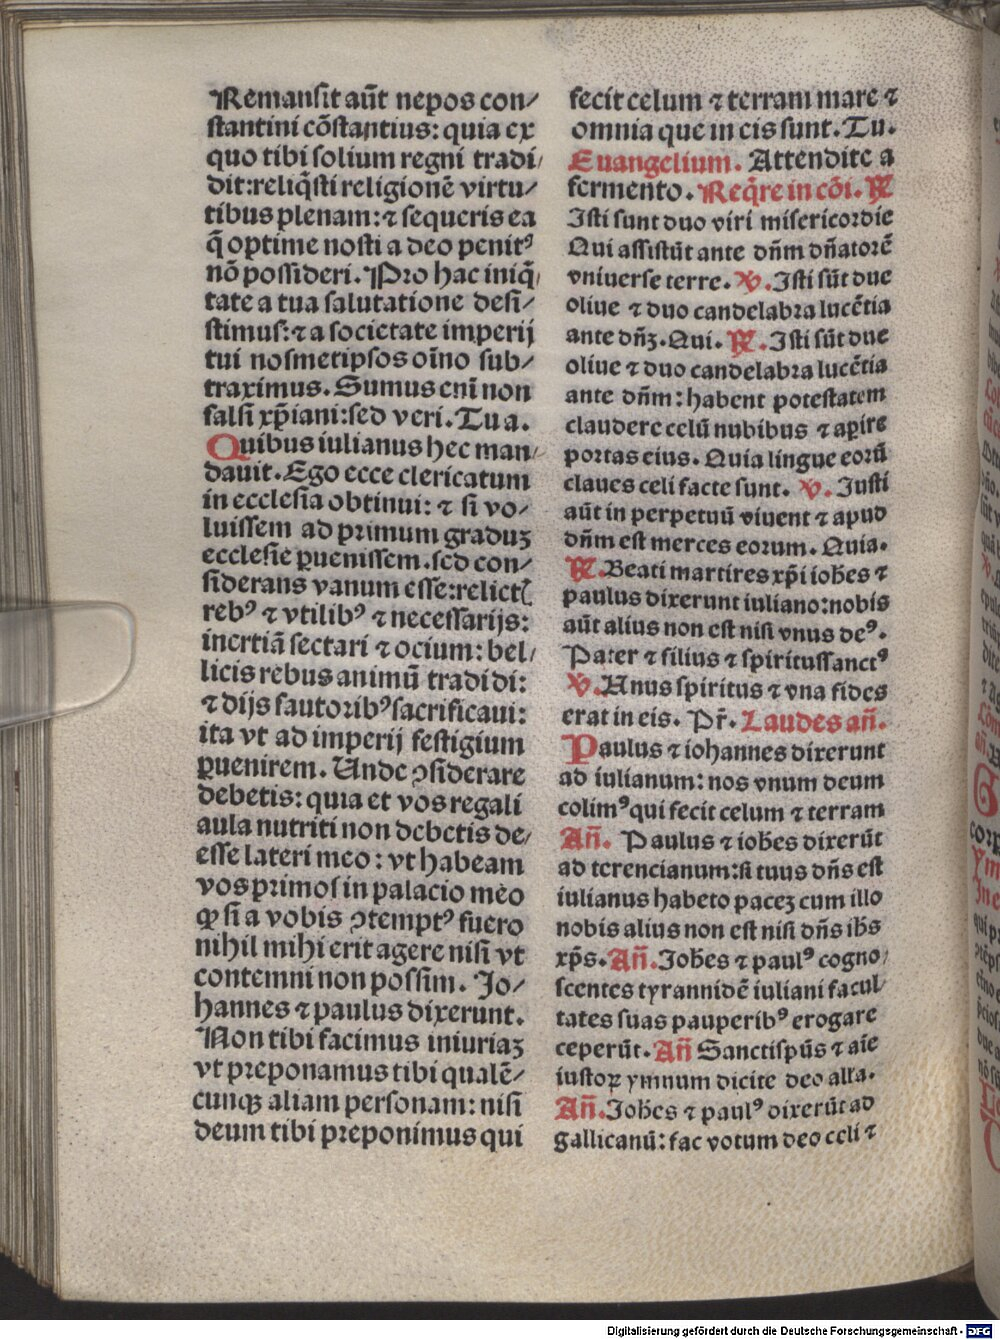 Remansit aūt nepos con⸗
stantini cōstantius: quia ex
quo tibi solium regni tradi⸗
dit: reliq̄sti religionē virtu⸗
tibus plenam: ⁊ sequeris ea
q̄ optime nosti a deo penitꝰ
nō possideri. Pro hac iniq̄⸗
tate a tua salutatione desi⸗
stimus: ⁊ a societate imperij
tui nosmetipsos oīno sub⸗
traximus. Sumus eni non
falsi xp̄iani: sed veri. Tu a.
Quibus iulianus hec man⸗
dauit. Ego ecce clericatum
in ecclesia obtinui: ⁊ si vo⸗
luissem ad primum graduꝫ
ecclesie ꝑuenissem. sed con⸗
siderans vanum esse: relict̄
rebꝰ ⁊ vtilibꝰ ⁊ necessarijs:
inertiā sectari ⁊ ocium: bel⸗
licis rebus animū tradidi:
⁊ dijs fautoribꝰ sacrificaui:
ita vt ad imperij festigium
ꝑuenirem. Unde ꝯsiderare
debetis: quia et vos regali
aula nutriti non debetis de⸗
esse lateri meo: vt habeam
vos primos in palacio meo
ꝙ si a vobis ꝯtemptꝰ fuero
nihil mihi erit agere nisi vt
contemni non possim. Jo⸗
hannes ⁊ paulus dixerunt.
Non tibi facimus iniuriaꝫ
vt preponamus tibi qualē⸗
cunqꝫ aliam personam: nisi
deum tibi preponimus qui
fecit celum ⁊ terram mare ⁊
omnia que in eis sunt. Tu.
Euangelium. Attendite a
fermento. Req̄re in cōi. ℟
Isti sunt duo viri misericordie
Qui assistūt ante dn̄m dn̄atorē
vniuerse terre. ℣. Isti sūt due
oliue ⁊ duo candelabra lucētia
ante dn̄ꝫ. Qui. ℟. Isti sūt due
oliue ⁊ duo candelabra lucētia
ante dn̄m: habent potestatem
claudere celū nubibus ⁊ aperire
portas eius. Quia lingue eorū
claues celi facte sunt. ℣. Iusti
aūt in perpetuū viuent ⁊ apud
dn̄m est merces eorum. Quia.
℟. Beati martires xp̄i ioh̄es ⁊
paulus dixerunt iuliano: nobis
aūt alius non est nisi vnus deꝰ.
Pater ⁊ filius ⁊ spiritussanctꝰ
℣. Unus spiritus ⁊ vna fides
erat in eis. Pr̄. Laudes an̄.
Paulus ⁊ iohannes dixerunt
ad iulianum: nos vnum deum
colimꝰ qui fecit celum ⁊ terram
An̄. Paulus ⁊ ioh̄es dixerūt
ad terencianum: si tuus dn̄s est
iulianus habeto paceꝫ cum illo
nobis alius non est nisi dn̄s ih̄s
xp̄s. An̄. Joh̄es ⁊ paulꝰ cogno⸗
scentes tyrannidē iuliani facul⸗
tates suas pauperibꝰ erogare
ceperūt. An̄ Sanctisp̄us ⁊ aīe
iustoꝝ ymnum dicite deo alla.
An̄. Joh̄es ⁊ paulꝰ dixerūt ad
gallicanū: fac votum deo celi ⁊
Digitalisierung gefördert durch die Deutsche Forschungsgemeinschaft - DFG